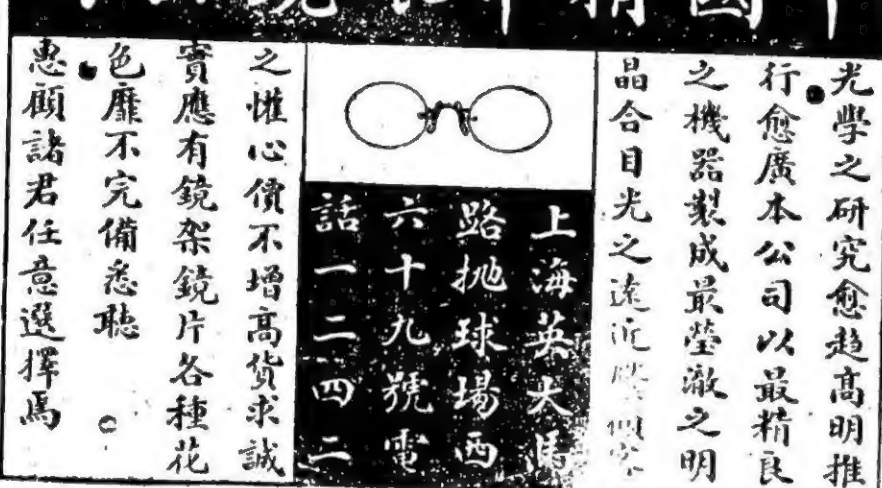 國精
光學之研究愈趋高明推
行愈廣本公司以最精良
之機器製成最瑩澈之明
晶合目光之遠近
上海英大馬
路抛球場西
六十九號電
話一二四二
之懽心價不增高貨求誠
實應有鏡架鏡片各種花
色靡不完備悉聽
惠顧諸君任意選擇焉